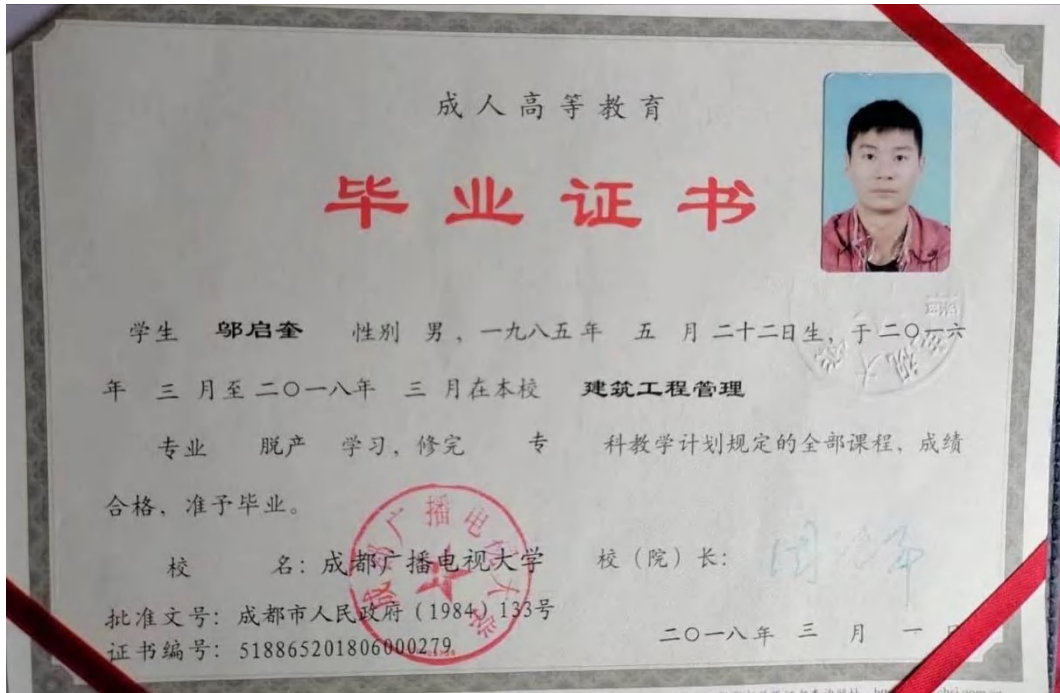 成人高等教育
毕业证书
学生 邬启奎 性别 男，一九八五年 五 月 二十二日生，于二〇一六
年 三 月至二〇一八年 三 月在本校 建筑工程管理
专业 脱产 学习，修完 专 科教学计划规定的全部课程，成绩
合格，准予毕业。
校 名：成都广播电视大学 校（院）长：
批准文号：成都市人民政府（1984）133号
证书编号：518865201806000279
二〇一八年 三 月 一 日
成都广播电视大学